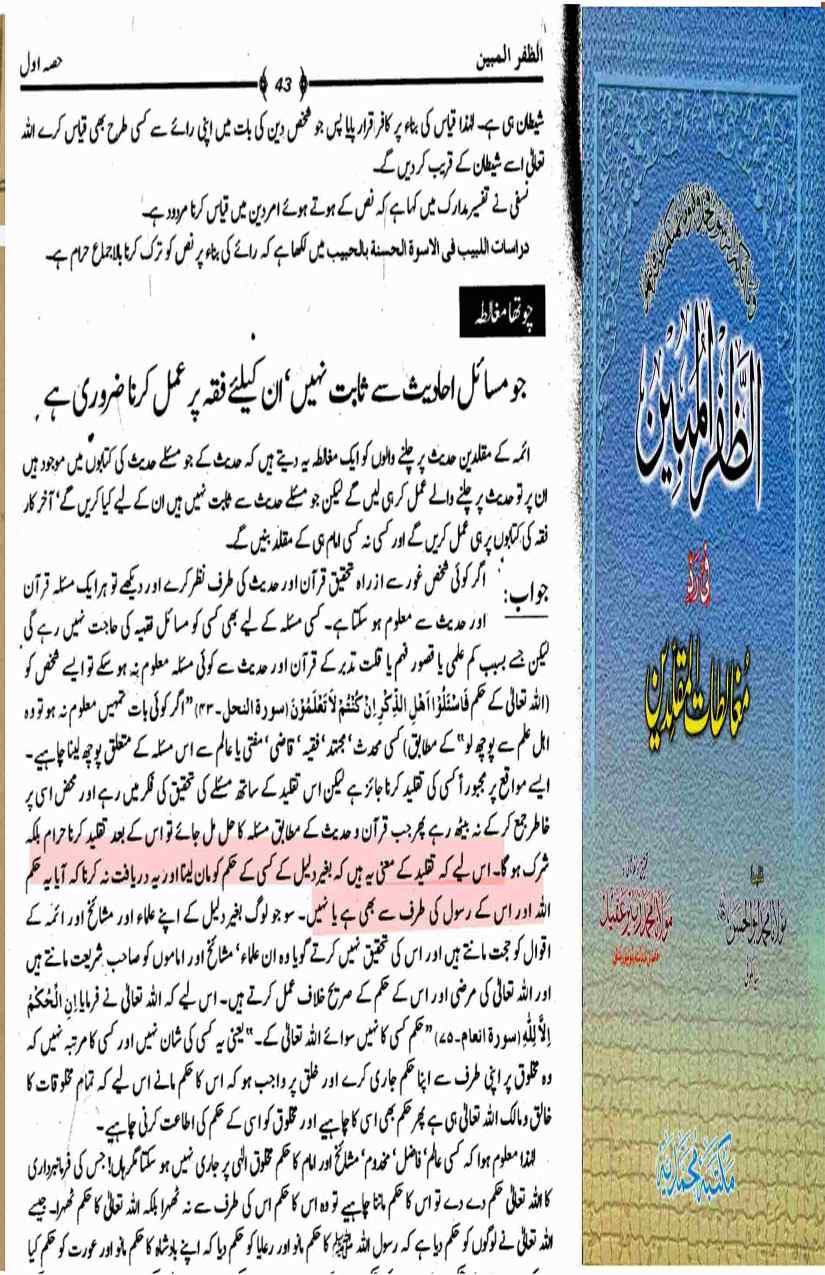 الظفر المبین
حصہ اول
43
شیطان ہی ہے۔ لہٰذا قیاس کی بناء پر کافر قرار پایا پس جو شخص دین کی بات میں اپنی رائے سے کسی طرح بھی قیاس کرے اللہ
تعالیٰ اسے شیطان کے قریب کر دیں گے۔
نسفی نے تفسیر مدارک میں کہا ہے کہ نص کے ہوتے ہوئے امر دین میں قیاس کرنا مردود ہے۔
دراسات اللبیب فی الاسوۃ الحسنۃ بالحبیب میں لکھا ہے کہ رائے کی بناء پر نص کو ترک کرنا بالاجماع حرام ہے۔
چوتھا مغالطہ
جو مسائل احادیث سے ثابت نہیں، ان کیلئے فقہ پر عمل کرنا ضروری ہے
ائمہ کے مقلدین حدیث پر چلنے والوں کو ایک مغالطہ یہ دیتے ہیں کہ حدیث کے جو مسئلے حدیث کی کتابوں میں موجود ہیں
ان پر تو حدیث پر چلنے والے عمل کر ہی لیں گے لیکن جو مسئلے حدیث سے ثابت نہیں ہیں ان کے لیے کیا کریں گے، آخر کار
فقہ کی کتابوں پر ہی عمل کریں گے اور کسی نہ کسی امام ہی کے مقلد بنیں گے۔
جواب: اگر کوئی شخص غور سے ازراہ تحقیق قرآن اور حدیث کی طرف نظر کرے اور دیکھے تو ہر ایک مسئلہ قرآن
اور حدیث سے معلوم ہو سکتا ہے۔ کسی مسئلہ کے لیے بھی کسی کو مسائل فقہیہ کی حاجت نہیں رہے گی
لیکن جسے بسبب کم علمی یا قصور فہم یا قلت تدبر کے قرآن اور حدیث سے کوئی مسئلہ معلوم نہ ہو سکے تو ایسے شخص کو
(اللہ تعالیٰ کے حکم فَاسْئَلُوْا اَهْلَ الذِّكْرِ اِنْ كُنْتُمْ لَا تَعْلَمُوْنَ (سورۃ النحل۔۴۳) ”اگر کوئی بات تمہیں معلوم نہ ہو تو وہ
اہل علم سے پوچھ لو“ کے مطابق) کسی محدث، مجتہد، فقیہ، قاضی، مفتی یا عالم سے اس مسئلہ کے متعلق پوچھ لینا چاہیے۔
ایسے مواقع پر مجبوراً کسی کی تقلید کرنا جائز ہے لیکن اس تقلید کے ساتھ مسئلے کی تحقیق کی فکر میں رہے اور محض اسی پر
خاطر جمع کر کے نہ بیٹھ رہے پھر جب قرآن و حدیث کے مطابق مسئلہ کا حل مل جائے تو اس کے بعد تقلید کرنا حرام بلکہ
شرک ہو گا۔ اس لیے کہ تقلید کے معنی یہ ہیں کہ بغیر دلیل کے کسی کے حکم کو مان لینا اور یہ دریافت نہ کرنا کہ آیا یہ حکم
اللہ اور اس کے رسول کی طرف سے بھی ہے یا نہیں۔ سو جو لوگ بغیر دلیل کے اپنے علماء اور مشائخ اور ائمہ کے
اقوال کو حجت مانتے ہیں اور اس کی تحقیق نہیں کرتے گویا وہ ان علماء، مشائخ اور اماموں کو صاحب شریعت مانتے ہیں
اور اللہ تعالیٰ کی مرضی اور اس کے حکم کے صریح خلاف عمل کرتے ہیں۔ اس لیے کہ اللہ تعالیٰ نے فرمایا اِنِ الْحُكْمُ
اِلَّا لِلّٰهِ (سورۃ انعام۔۷۵) ”حکم کسی کا نہیں سوائے اللہ تعالیٰ کے۔“ یعنی یہ کسی کی شان نہیں اور کسی کا مرتبہ نہیں کہ
وہ مخلوق پر اپنی طرف سے اپنا حکم جاری کرے اور خلق پر واجب ہو کہ اس کا حکم مانے اس لیے کہ تمام مخلوقات کا
خالق و مالک اللہ تعالیٰ ہی ہے پھر حکم بھی اسی کا چاہیے اور مخلوق کو اسی کے حکم کی اطاعت کرنی چاہیے۔
لہٰذا معلوم ہوا کہ کسی عالم، فاضل، مخدوم، مشائخ اور امام کا حکم مخلوق الٰہی پر جاری نہیں ہو سکتا مگر ہاں! جس کی فرمانبرداری
کا اللہ تعالیٰ حکم دے دے تو اس کا حکم ماننا چاہیے تو وہ اس کا حکم اس کی طرف سے نہ ٹھہرا بلکہ اللہ تعالیٰ کا حکم ٹھہرا۔ جیسے
اللہ تعالیٰ نے لوگوں کو حکم دیا ہے کہ رسول اللہ ﷺ کا حکم مانو اور رعایا کو حکم دیا کہ اپنے بادشاہ کا حکم مانو اور عورت کو حکم کیا
الظَّفَرُ المُبِین
فی رد
مُغالطات المُقلّدین
مولانا محمد ابوالحسن
مکتبہ محمدیہ